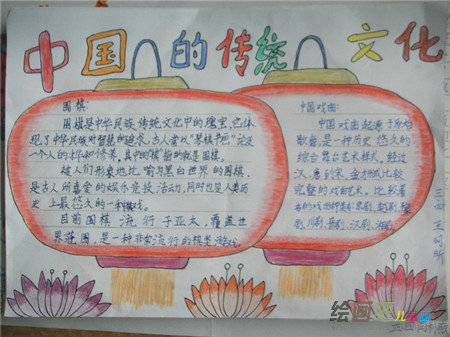 中国的传统文化
围棋:
围棋是中华民族传统文化中的瑰宝,它体
现了中华民族对智慧的追求,古人常以“琴棋书画”论及
一个人的才华和修养,其中的“棋”指的就是围棋。
被人们形象地比喻为黑白世界的围棋,
是古人所喜爱的娱乐竞技活动,同时也是人类历
史上最悠久的一种棋戏。
目前围棋流行于亚太,覆盖世
界范围,是一种非常流行的棋类游戏。
中国戏曲:
中国戏曲起源于原始
歌舞,是一种历史悠久的
综合舞台艺术样式。经过
汉、唐到宋、金才形成比较
完整的戏曲艺术,比较著
名的戏曲种类有:京剧、越剧、
剧、川剧、晋剧、汉剧、
三四
绘画
儿童画